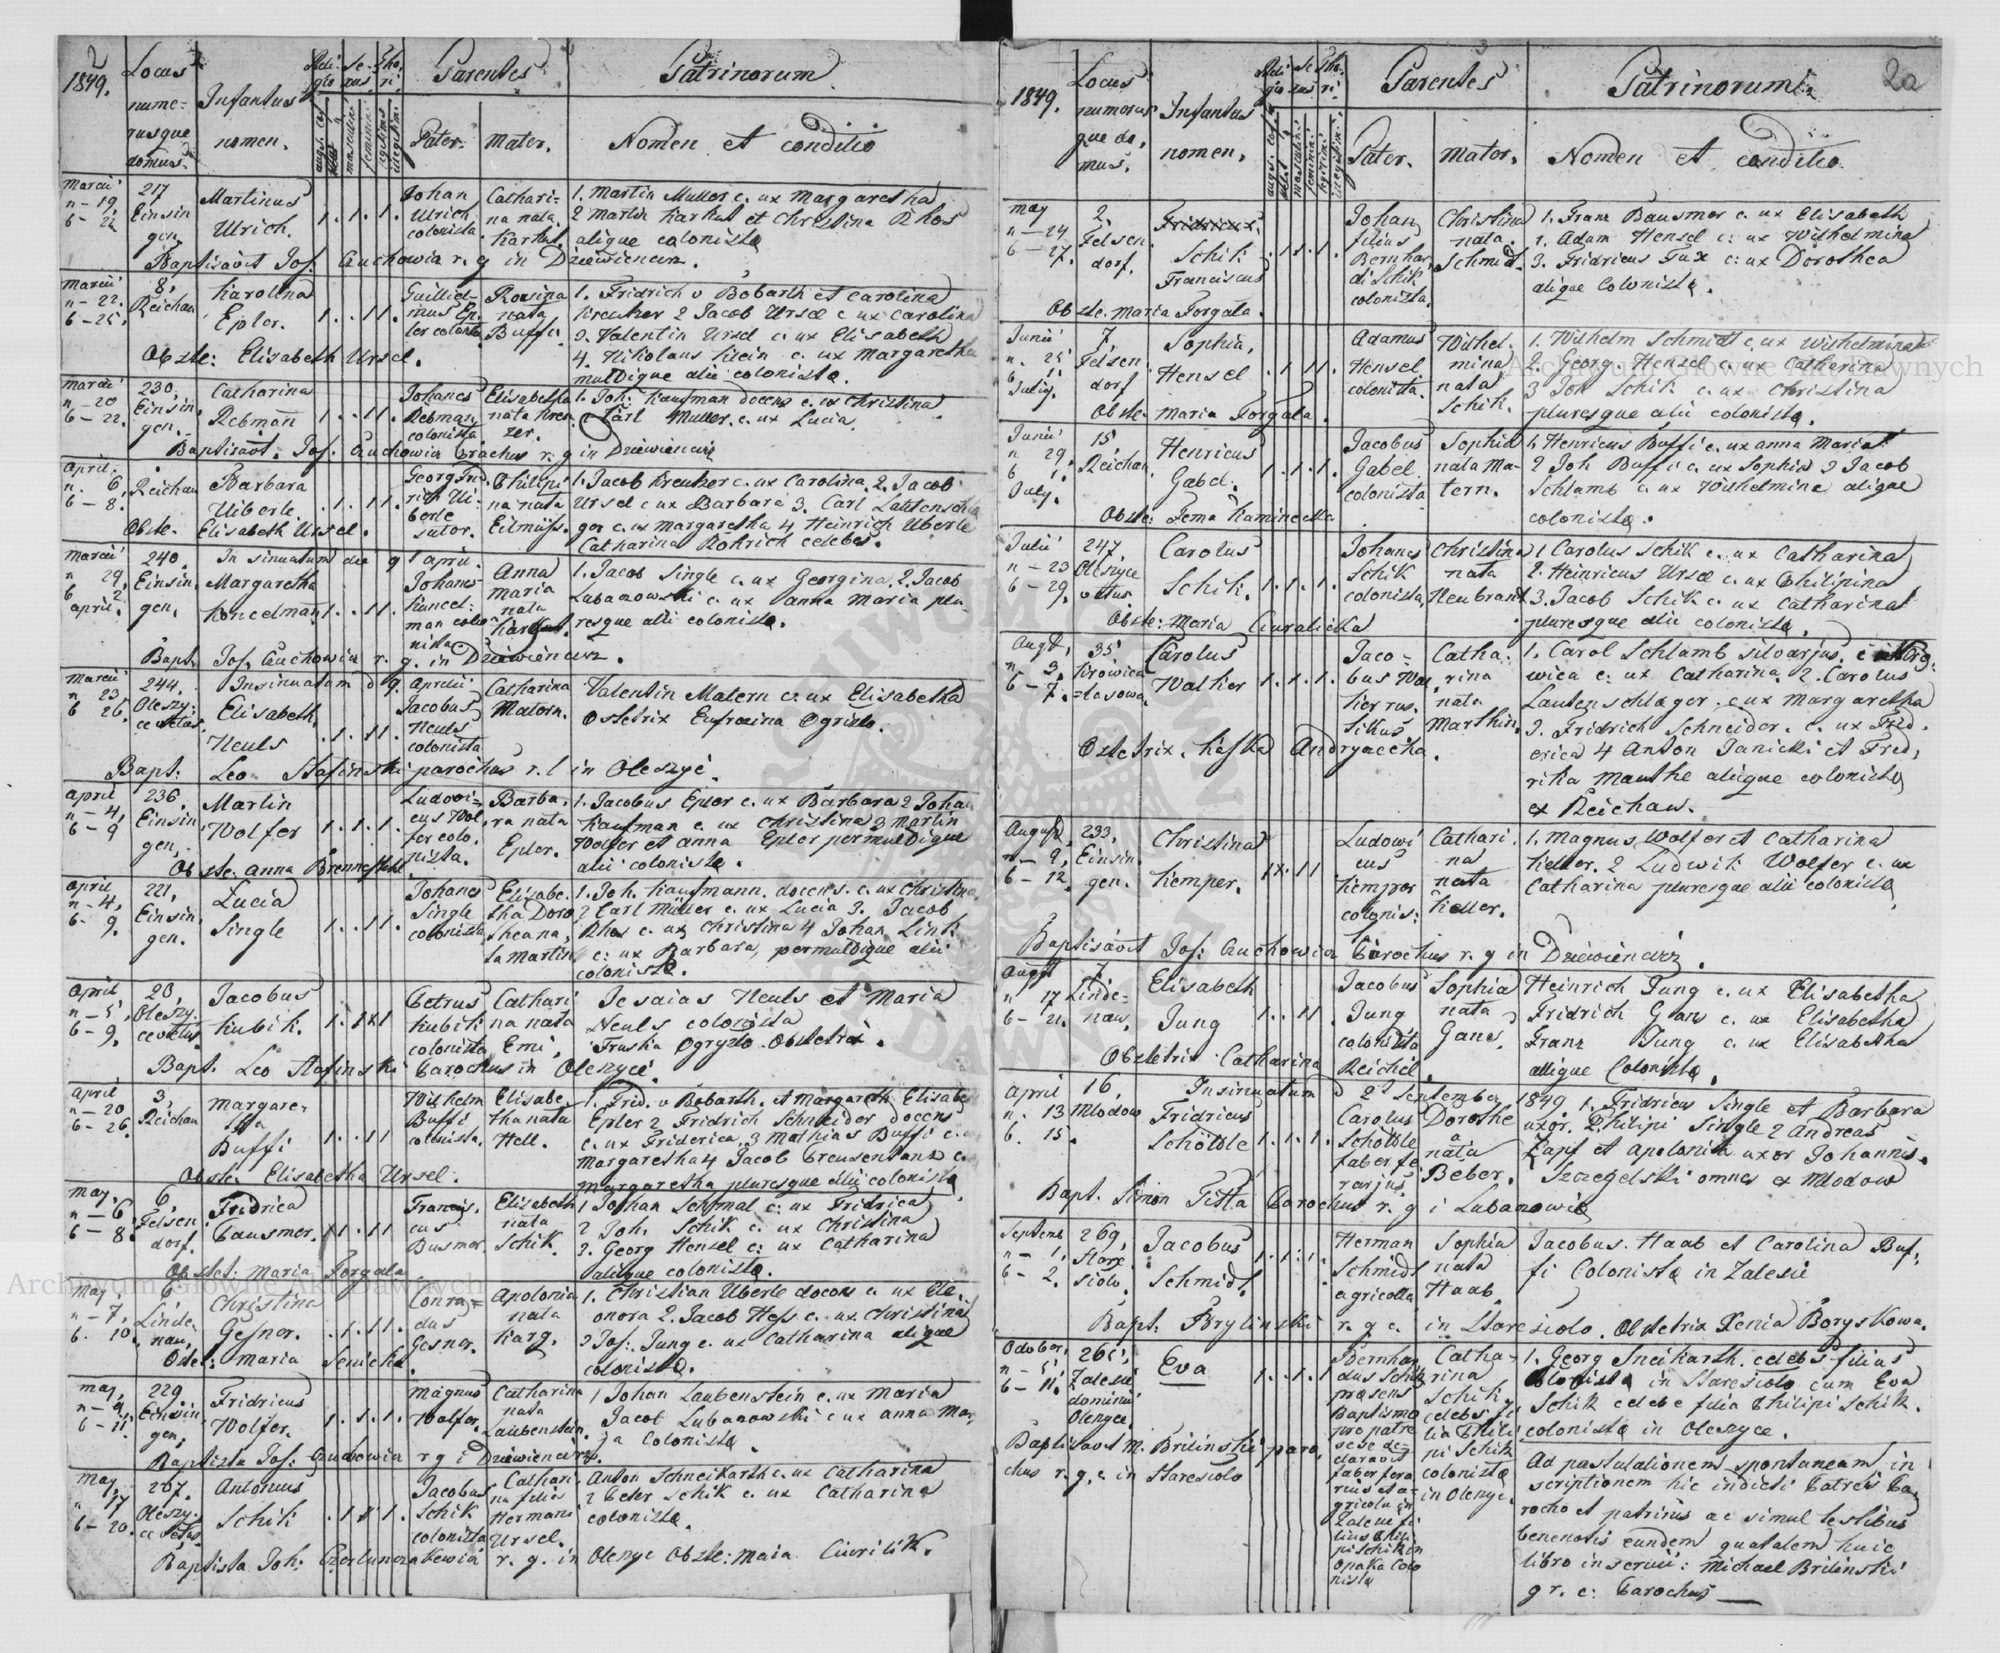 2
1849.
Locus numerusque domus.
Infantus nomen.
Religio
Sexus
Thori
Parentes
Patrinorum
Pater.
Mater.
Nomen et conditio
Marcii n-19. b-22.
217 Einsingen
Martinus Ulrich. 1. 1. 1.
Johan Ulrich colonista
Catharina nata Karhut.
1. Martin Muller c. ux Margaretha
2 Martin Karhut et Christina Rhos
aliique colonistæ
Baptisavit Jos. Cuchowicz r. g in Dziewiencierz.
Marcii n-22. b-25.
8, Reichau
Karolina Epler. 1. 11.
Guillielmus Epler colonista
Rosina nata Buffi.
1. Fridrich v Bobarth et Carolina
Kreutzer 2 Jacob Ursel c ux Carolina
3. Valentin Ursel c. ux Elisabeth
4. Nikolaus Klein c. ux Margaretha
multique alii colonistæ.
Obste: Elisabeth Ursel.
Marcii n-20 b-22.
230, Einsingen.
Catharina Rebman 1. 11.
Johanes Rebman colonista
Elisabetha nata Kreuzer.
1. Joh: Kaufman docens c. ux Christina
2 Carl Muller. c. ux Lucia.
Baptisavit. Jos. Cuchowicz Parochus r. g in Dziewiencierz
April. n. 6, b-8.
Reichau
Barbara Uiberle 1. 11.
Georg Fridrich Uiberle sutor.
Philipina nata Eilmuss.
1. Jacob Kreutzer c. ux Carolina. 2. Jacob
Ursel c ux Barbara 3. Carl Lautenschlager
c. ux Margaretha 4 Heinrich Uberle
Catharina Rohrich celebes.
Obste. Elisabeth Ursel.
Marcii n 29, b 2. april.
240. Einsingen.
Insinuatum die 9 april.
Margaretha Koncelman 1. 11.
Johanes Kuncelman colonista
Anna Maria nata Karhut
1. Jacob Single c. ux Georgina. 2. Jacob
Lubanowski c. ux Anna Maria pluresque
alii colonistæ.
Bapt. Jos. Cuchowicz r. g. in Dziewiencierz.
Marcii n 23, b 26.
244. Oleszyce vetus.
Insinuatum d 9. Aprilii
Elisabeth Neuls 1. 11.
Jacobus Neuls colonista
Catharina Matern.
Valentin Matern c. ux Elisabetha
Ostetrix Eufrozina Ogrizlo.
Bapt. Leo Stafinski parochus r. l in Oleszyci.
April n-4, b-9
236. Einsingen,
Martin Wolfer 1. 1. 1.
Ludovicus Wolfer colonista.
Barbara nata Epler.
1. Jacobus Epler c. ux Barbara 2 Johan
Kaufman c. ux Christina 3 Martin
Wolfer et Anna Epler permultique
alii colonistæ.
Obste. Anna Brenneftuhl
April n-4, b-9.
221, Einsingen.
Lucia Single 1. 11.
Johanes Single colonista
Elisabetha Dorotheana, Martin
1. Joh. Kaufmann. docens. c. ux Christina
2 Carl Müller c. ux Lucia 3. Jacob
Rhos c. ux Christina 4 Johan Link
c: ux Barbara, permultique alii
colonistæ.
April n-5, b-9.
20, Oleszyce vetus
Jacobus Kubik.
Petrus Kubik colonista
Catharina nata Emi,
Jesaias Neuls et Maria
Neuls colonista
Fruska Ogryzlo. Obstetrix.
Bapt. Leo Stafinski Parochus in Oleszyci.
April n-20 b-26.
3, Reichau
Margaretha Buffi 1. 11
Wilhelm Buffi colonista.
Elisabetha nata Hell.
1. Frid. v Bobarth. et Margareth Elisabet
Epler 2 Fridrich Schneider docens
c. ux Friderica. 3 Mathias Buffi c. u.
Margaretha 4 Jacob Creusentanz c.
Margaretha pluresque alii colonistæ.
Obste. Elisabetha Ursel.
May. n-6 b-8.
6, Felsendorf.
Fridrica Bausmer. 11. 11
Franciscus Busmer.
Elisabeth nata Schik.
1 Johan Schmal c: ux Fridrica
2 Joh. Schik c. ux Christina
3. Georg Hensel c: ux Catharina
aliique colonistæ.
Obstet: Maria Forgala.
May. n-7, b. 10.
6, Lindenau,
Christina Gesner. 1. 11.
Conradus Gesner.
Apolonia nata Karg.
1. Christian Uberle docens c. ux Eleonora
2. Jacob Hess c. ux Christina
3 Jos. Jung c. ux Catharina aliique
colonistæ.
Obst: Maria Senicka.
May, n-9, b-11.
229. Einsingen,
Fridricus Wolfer. 1. 1. 1.
Magnus Wolfer.
Catharina nata Laubenstein.
1 Johan Laubenstein c. ux Maria
Jacob Lubanowski c ux Anna Maria
Colonistæ.
Baptista Jos: Cuchowicz r g i Dziewiencierz.
May, n 17 b-20.
267. Oleszyce vetus
Antonius Schik 1. 1 1.
Jacobus Schik colonista
Catharina filia Hermani Ursel.
Anton Schneikarth c. ux Catharina
2 Peter Schik c. ux Catharina
colonistæ.
Baptista Joh: r. g. in Oleszyc Obste: Maria Ciurilik.
2a
1849.
Locus numerusque domus.
Infantus nomen.
Religio
Sexus
Thori
Parentes
Patrinorum
Pater.
Mater.
Nomen et conditio
May n-24 b-27.
2. Felsendorf.
Fridricus. Schik Franciscus 1. 1. 1.
Johan filius Bernhardi Schik colonista.
Christina nata Schmidt.
1. Franz Bausmer c. ux Elisabeth
2. Adam Hensel c: ux Wilhelmina
3. Fridricus Fux c: ux Dorothea
aliique Colonistæ.
Obste. Maria Forgala.
Junii n. 25 b. 1. Julij.
7, Felsendorf
Sophia, Hensel 1. 11.
Adamus Hensel colonista.
Wilhelmina nata Schik.
1. Wilhelm Schmidt c. ux Wilhelmina
2. Georg Hensel c. ux Catharina
3 Joh Schik c. ux Christina
pluresque alii colonistæ.
Obste. Maria Forgala.
Junii n 29. b 1. July.
15 Reichau.
Henricus Gabel. 1. 1. 1.
Jacobus Gabel colonista
Sophia nata Matern.
1. Henricus Buffi c. ux Anna Maria
2 Joh Buffi c. ux Sophia 3 Jacob
Schlamb c. ux Wilhelmina aliique
colonistæ.
Obste: Tema Kaminecka
Julii n-23 b-29.
247, Oleszyce vetus
Carolus Schik. 1. 1. 1.
Johanes Schik colonista,
Christina nata Neubrant
1 Carolus Schik c. ux Catharina
2. Heinricus Ursel c. ux Philipina
3. Jacob Schik c. ux Catharina
pluresque alii colonistæ.
Obste: Maria Ciuralicka
Augt, n. 3, b-7.
35 Krowica Lasowa
Carolus Walher 1. 1. 1.
Jacobus Walher rustikus.
Catharina nata Marthin.
1. Carol Schlamb silvarjus.
c: ux Catharina 2. Carolus
Lautenschlager c ux Margaretha
3. Fridrich Schneider. c. ux Friderica
4 Anton Janicki et Fredrika
Manthe aliique colonistæ
ex Reichau.
Ostetrix. Kaska Andryaccha.
August, n-9, b-12.
233, Einsingen.
Christina Kemper. 1x. 11
Ludovicus Kemper colonis:
Catharina nata Keller.
1. Magnus Wolfer et Catharina
Keller. 2 Ludwik Wolfer c. ux
Catharina pluresque alii colonistæ
Baptisavit Jos: Cuchowicz Parochus r. g in Dziewiencierz.
Augst n 17 b-21.
7 Lindenau,
Elisabeth Jung 1. 11.
Jacobus Jung colonista Reichel.
Sophia nata Gans.
Heinrich Jung c. ux Elisabetha
Fridrich Gans c. ux Elisabetha
Franz Jung c. ux Elisabetha
aliique Colonistæ.
Obstetrix Catharina
April n. 13 b. 15.
16, Mlodow
Insinuatum d 2d September 1849
Fridricus Schöttle 1. 1. 1.
Carolus Schöttle faber ferrarjus
Dorothea nata Beber.
1. Fridricus Single et Barbara
uxor. Philipi Single 2 Andreas
Zapf et Apolonia uxor Johannis.
Szczegelski omnes ex Mlodow
Bapt. Simon Titta Parochus r. g i Lubanowie
Septemb n-1, b-2.
269, Staresiolo,
Jacobus Schmidt. 1. 1. 1.
Herman Schmidt agricolla
Sophia nata Haab.
Jacobus. Haab et Carolina Buffi
Colonistæ in Zalesie
Bapt. Brylinski r. g c. in Staresiolo. Obstetrix Xenia Boryskowa.
October n-5, b-11.
265, Zalesie dominii Oleszyce.
Eva 1. 1. 1
Bernhardus Schik præsens Baptismo pro patre sese declaravit faber ferarius et agricola in Zalesie filius Philipi Schik in Opaka Colonista
Catharina Schik, celebs filia Philipi Schik colonistæ in Oleszyc.
1. Georg Sneikarth. celebs filius
Colonistæ in Staresiolo cum Eva
Schik celebe filia Philipi Schik.
colonistæ in Oleszyce.
Baptisavit M. Brilinski parochus r. g. c in Staresiolo
Ad pastulationem spontaneam inscriptionem
hic indicti Patris Parocho
et patrinis ac simul testibus
benenotis eundem quatalem huic
libro inserui: Michael Brilinski
g r. c: Parochus
Archiwum Główne Akt Dawnych
Archiwum Główne Akt Dawnych